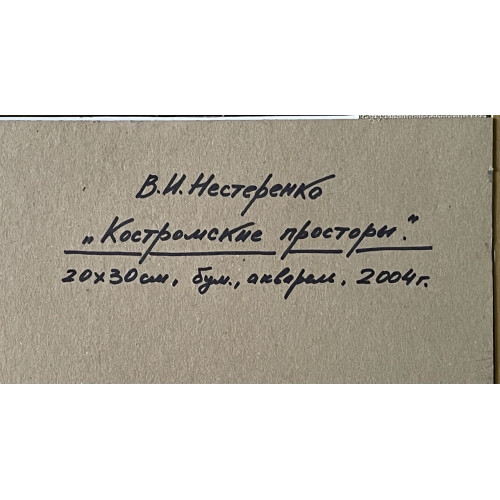 В.И.Нестеренко
„Костромские просторы."
20х30см, бум., акварель. 2004г.